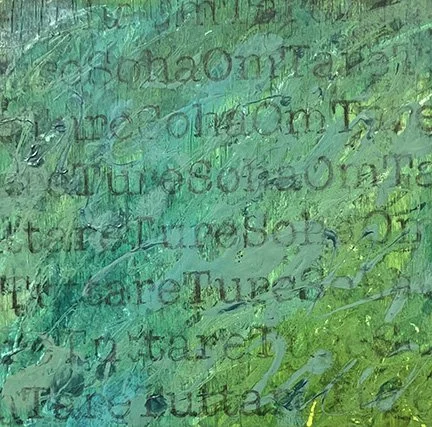 OmTar
SohaOmTare
areSohaOmTure
areTureSohaOmTa
ttareTureSohaOm
TuttareTureSo
reTuttareTu
TareTuttar